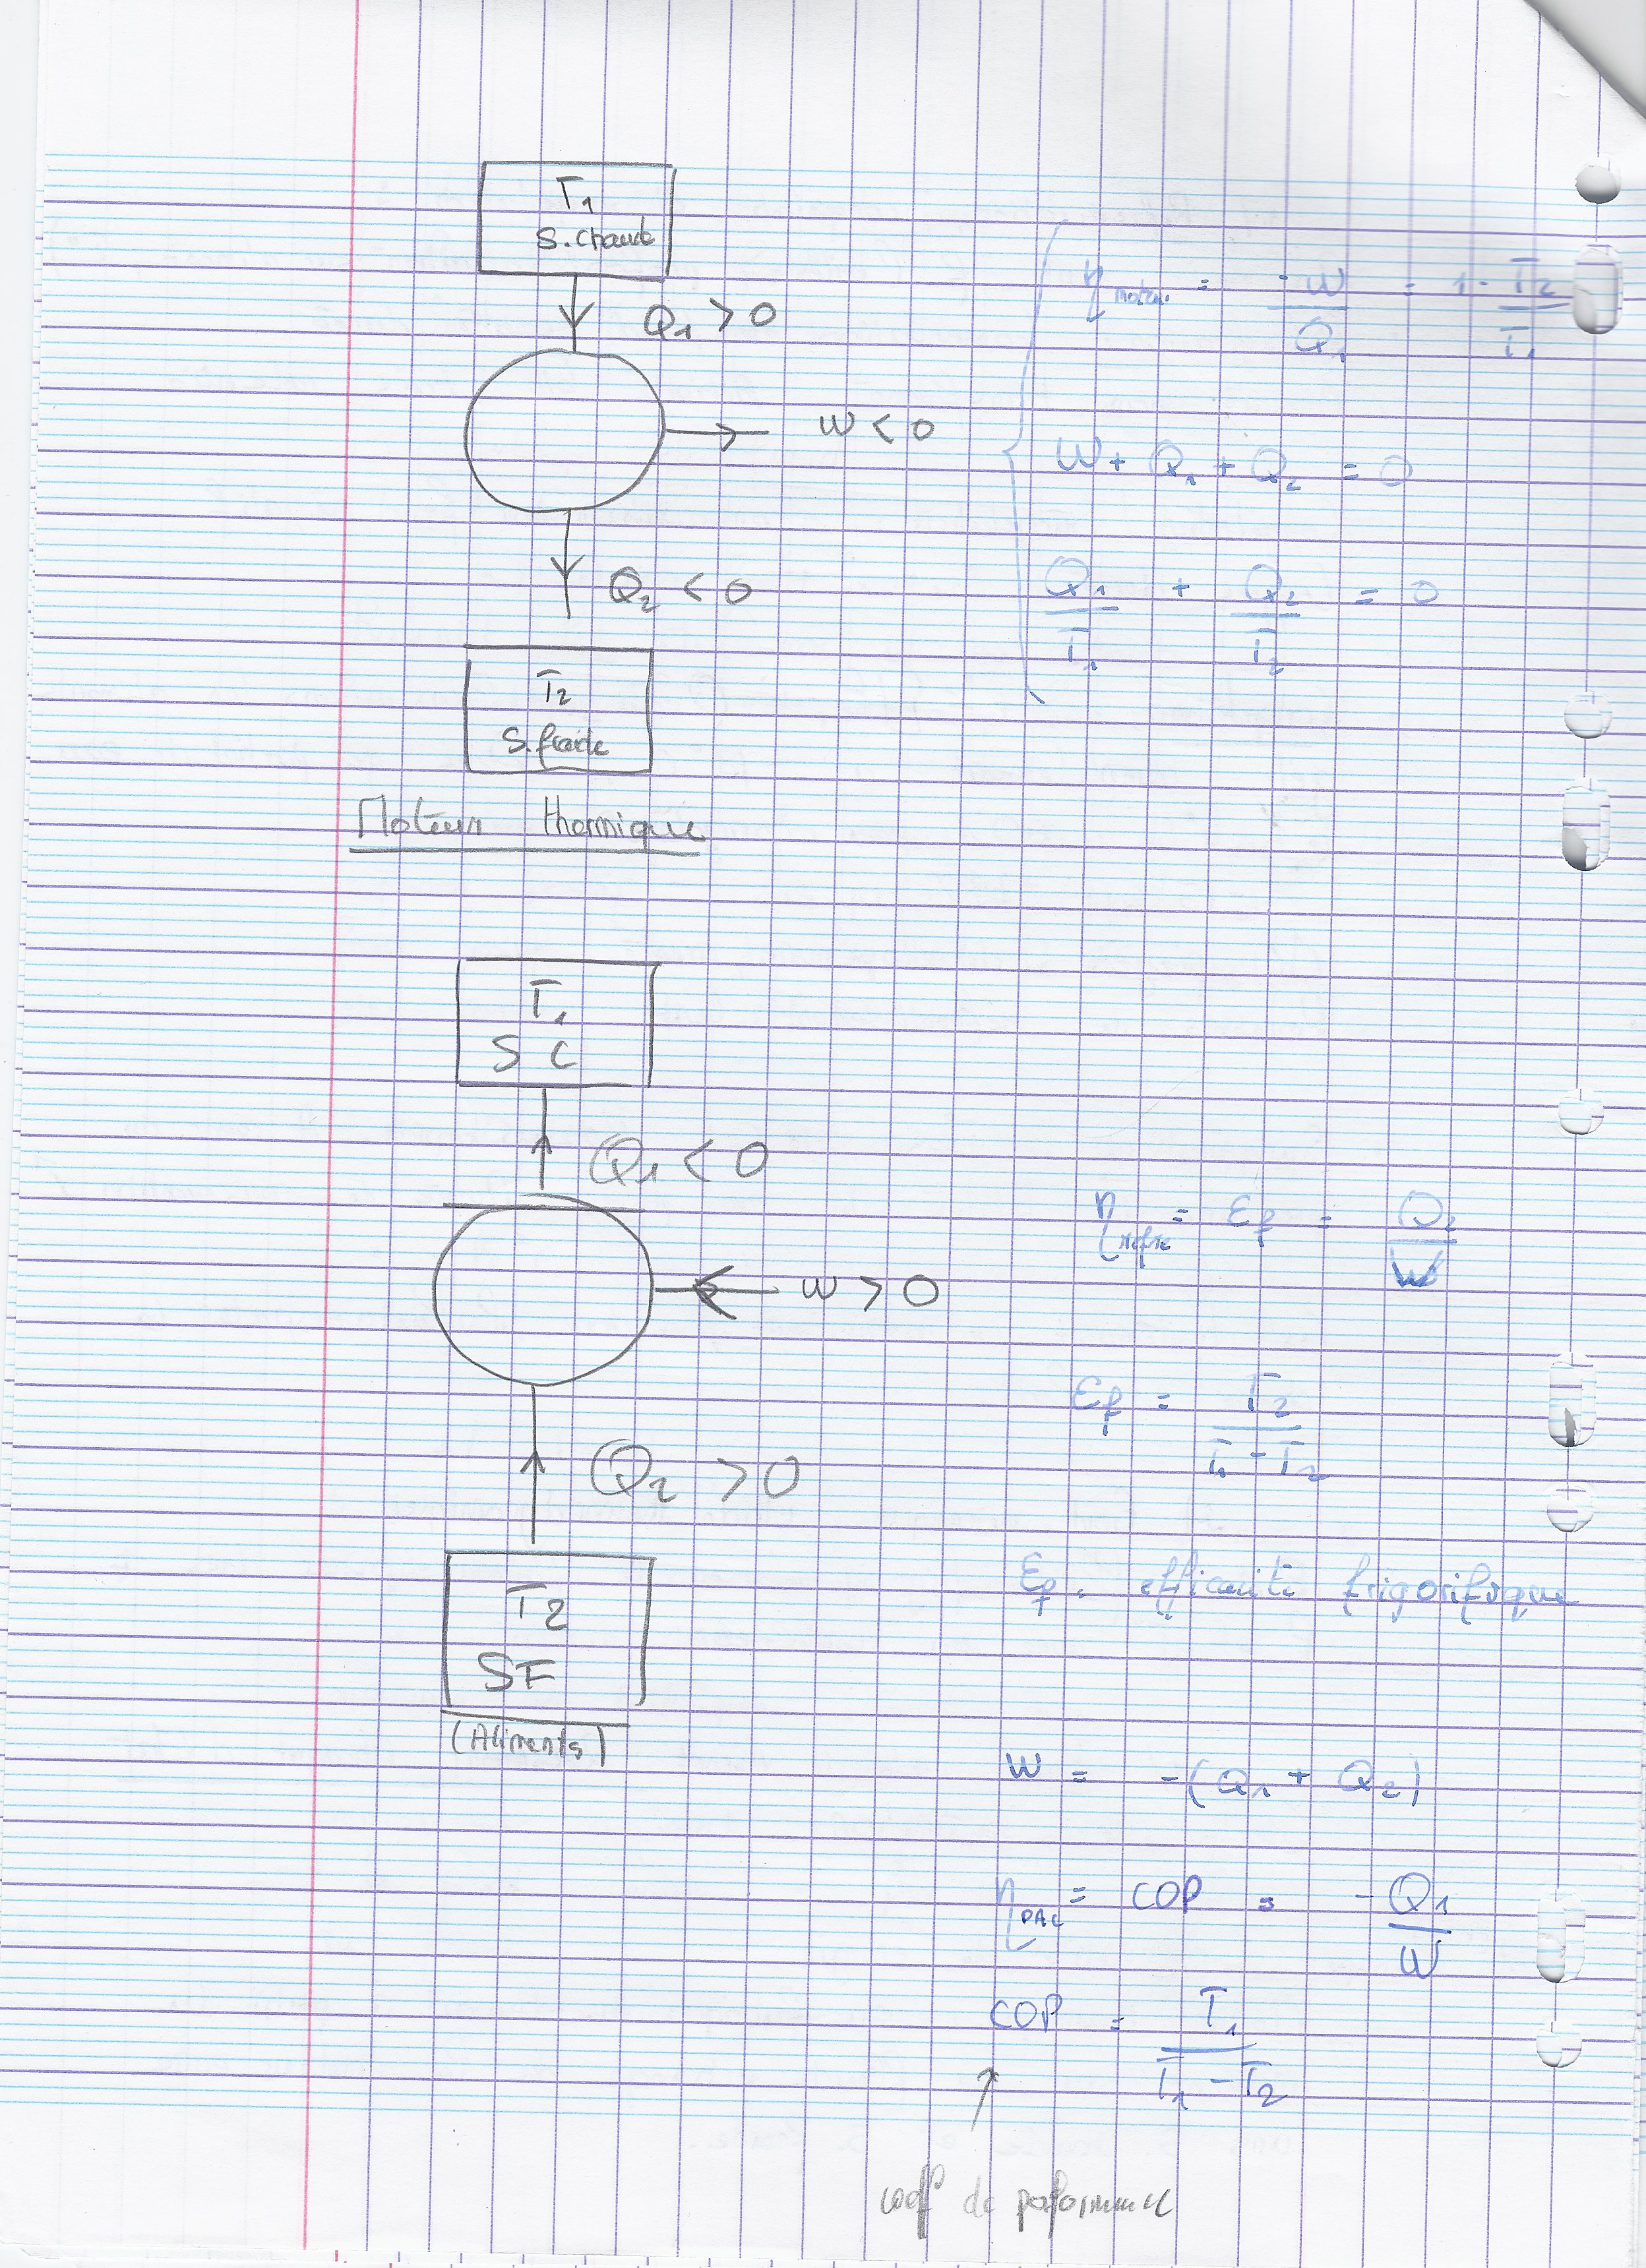 T₁
S. chaude
Q₁ > 0
W < 0
Q₂ < 0
T₂
S. froide
Moteur thermique
η moteur = -W/Q₁ = 1 - T₂/T₁
W + Q₁ + Q₂ = 0
Q₁/T₁ + Q₂/T₂ = 0
T₁
S C
Q₁ < 0
W > 0
Q₂ > 0
T₂
SF
(Aliments)
= εf = Q₂/W
εf = T₂/(T₁ - T₂)
εf : efficacité frigorifique
W = -(Q₁ + Q₂)
η PAC = COP = -Q₁/W
COP = T₁/(T₁ - T₂)
coef de performance